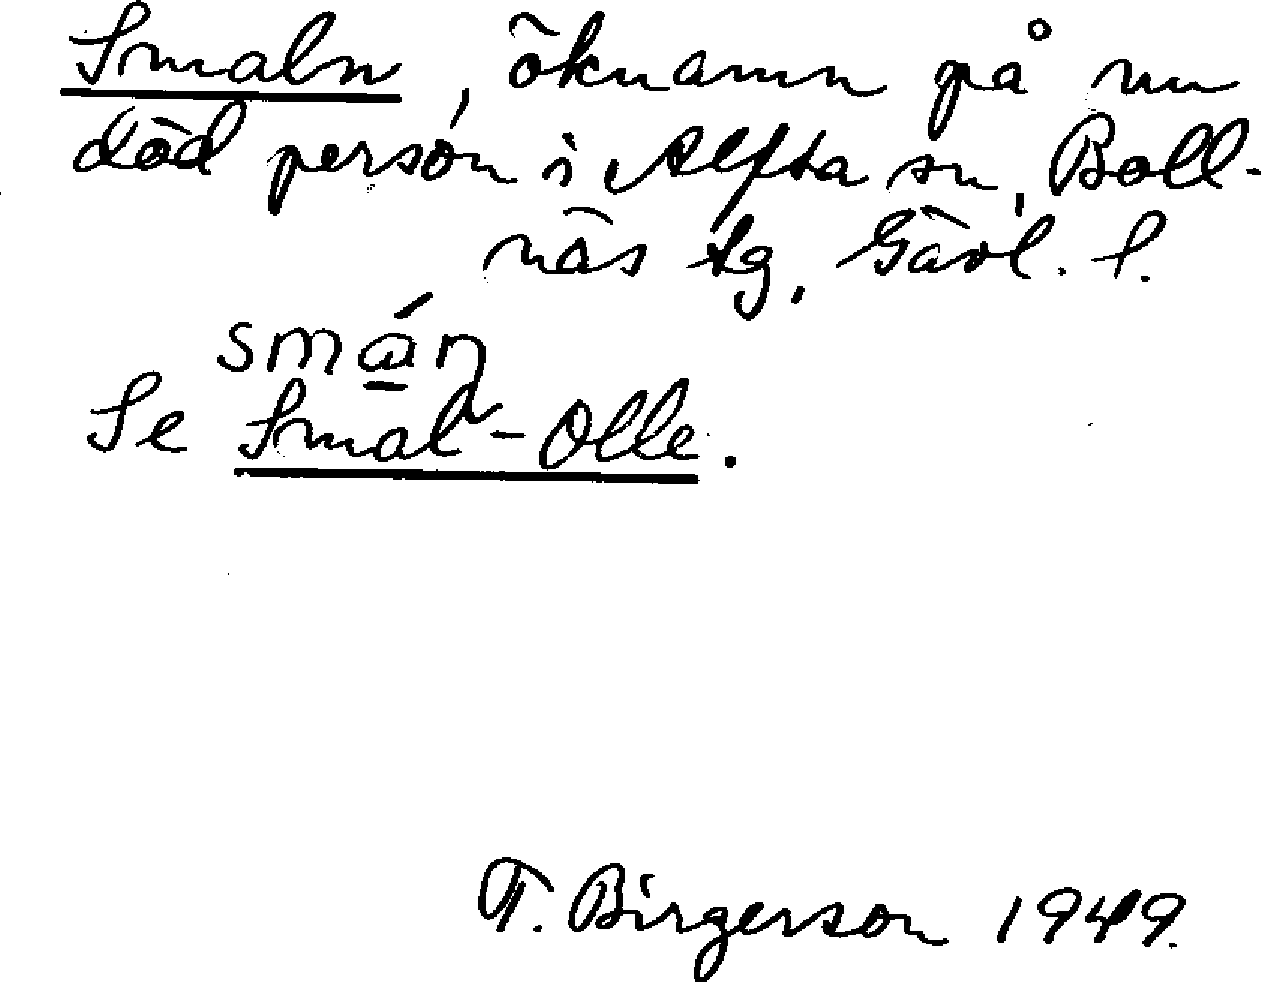 Smaln, öknamn på nu
död person i Alfta sn, Boll-
näs tg, Gävl. l.
smán
Se Smal-Olle.
T. Birgerson 1949.